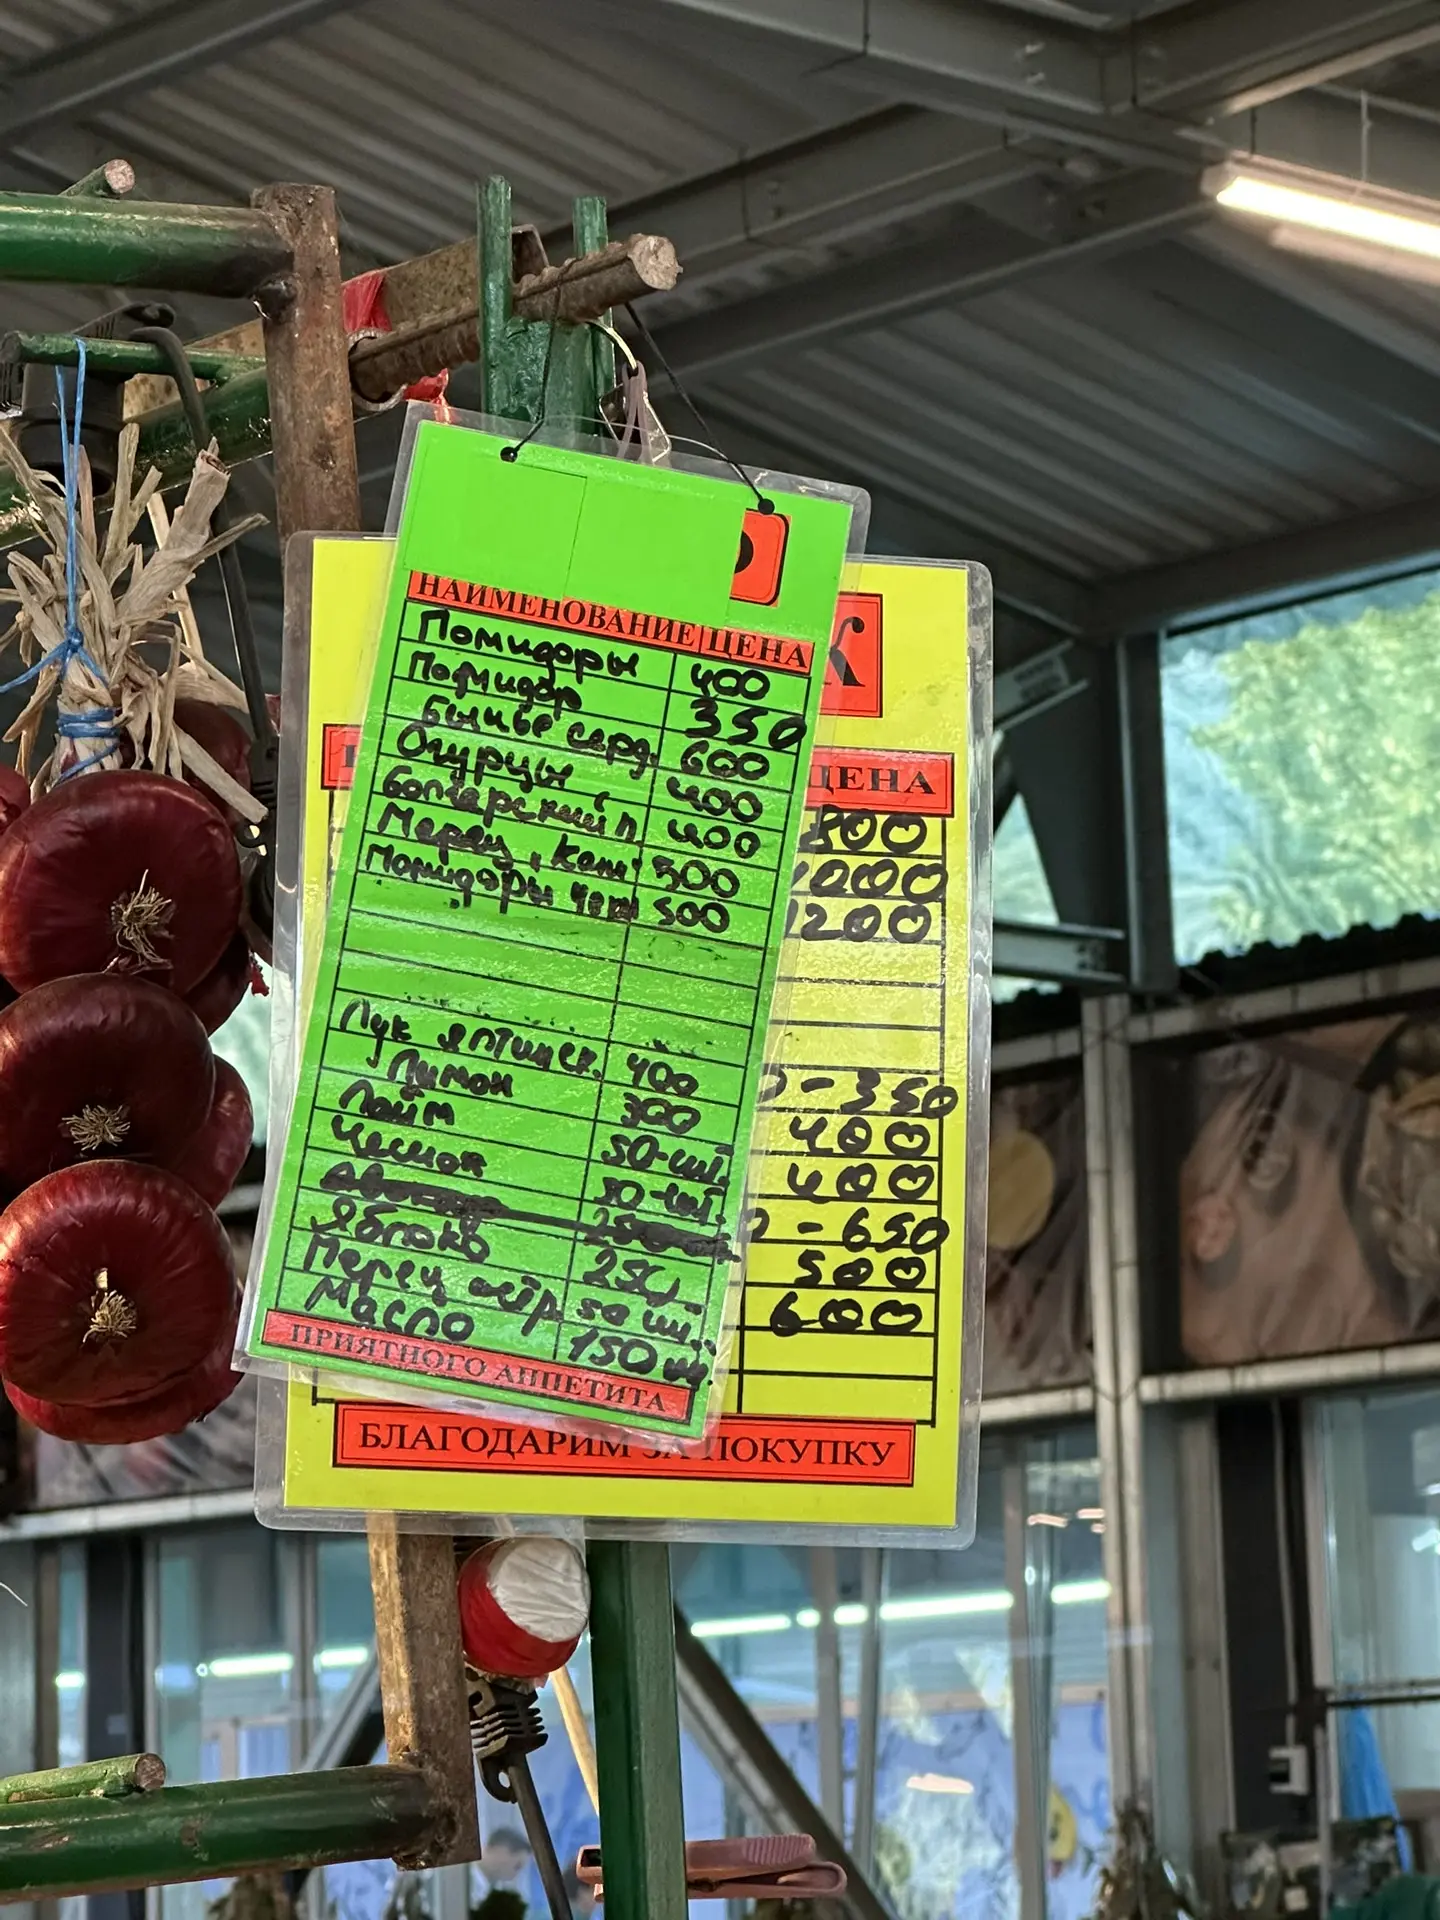 НАИМЕНОВАНИЕ ЦЕНА
Помидоры 400
Помидор 350
Бычье серд. 600
Огурцы 400
Болгарский п 400
Перец, Кап 500
Помидоры Чер 500
Лук ялтинск. 400
Лимон 300
Лайм 50-шт.
Чеснок 50-шт.
Яблоко 250-
Перец остр 50 шт
Масло 150 шт.
ПРИЯТНОГО АППЕТИТА
К
ЦЕНА
800
1000
1200
- 350
400
400
- 650
500
600
БЛАГОДАРИМ ЗА ПОКУПКУ